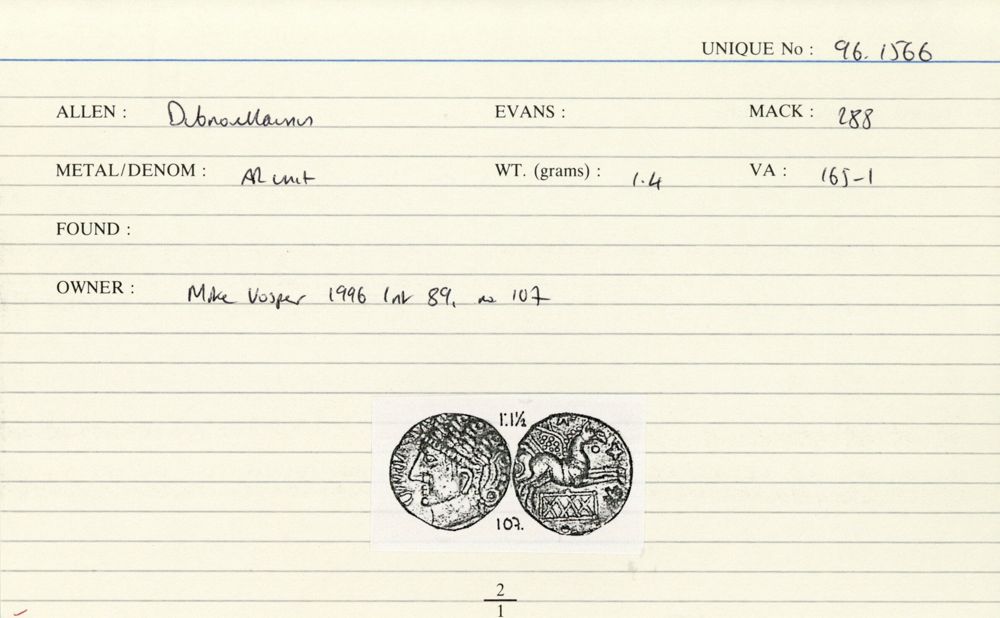 UNIQUE No : 96.1566
ALLEN : Dubnovellaunus EVANS : MACK : 288
METAL/DENOM : AR unit WT. (grams) : 1.4 VA : 165-1
FOUND :
OWNER : Mike Vosper 1996 list 89, no 107
1.1½
107.
2
1